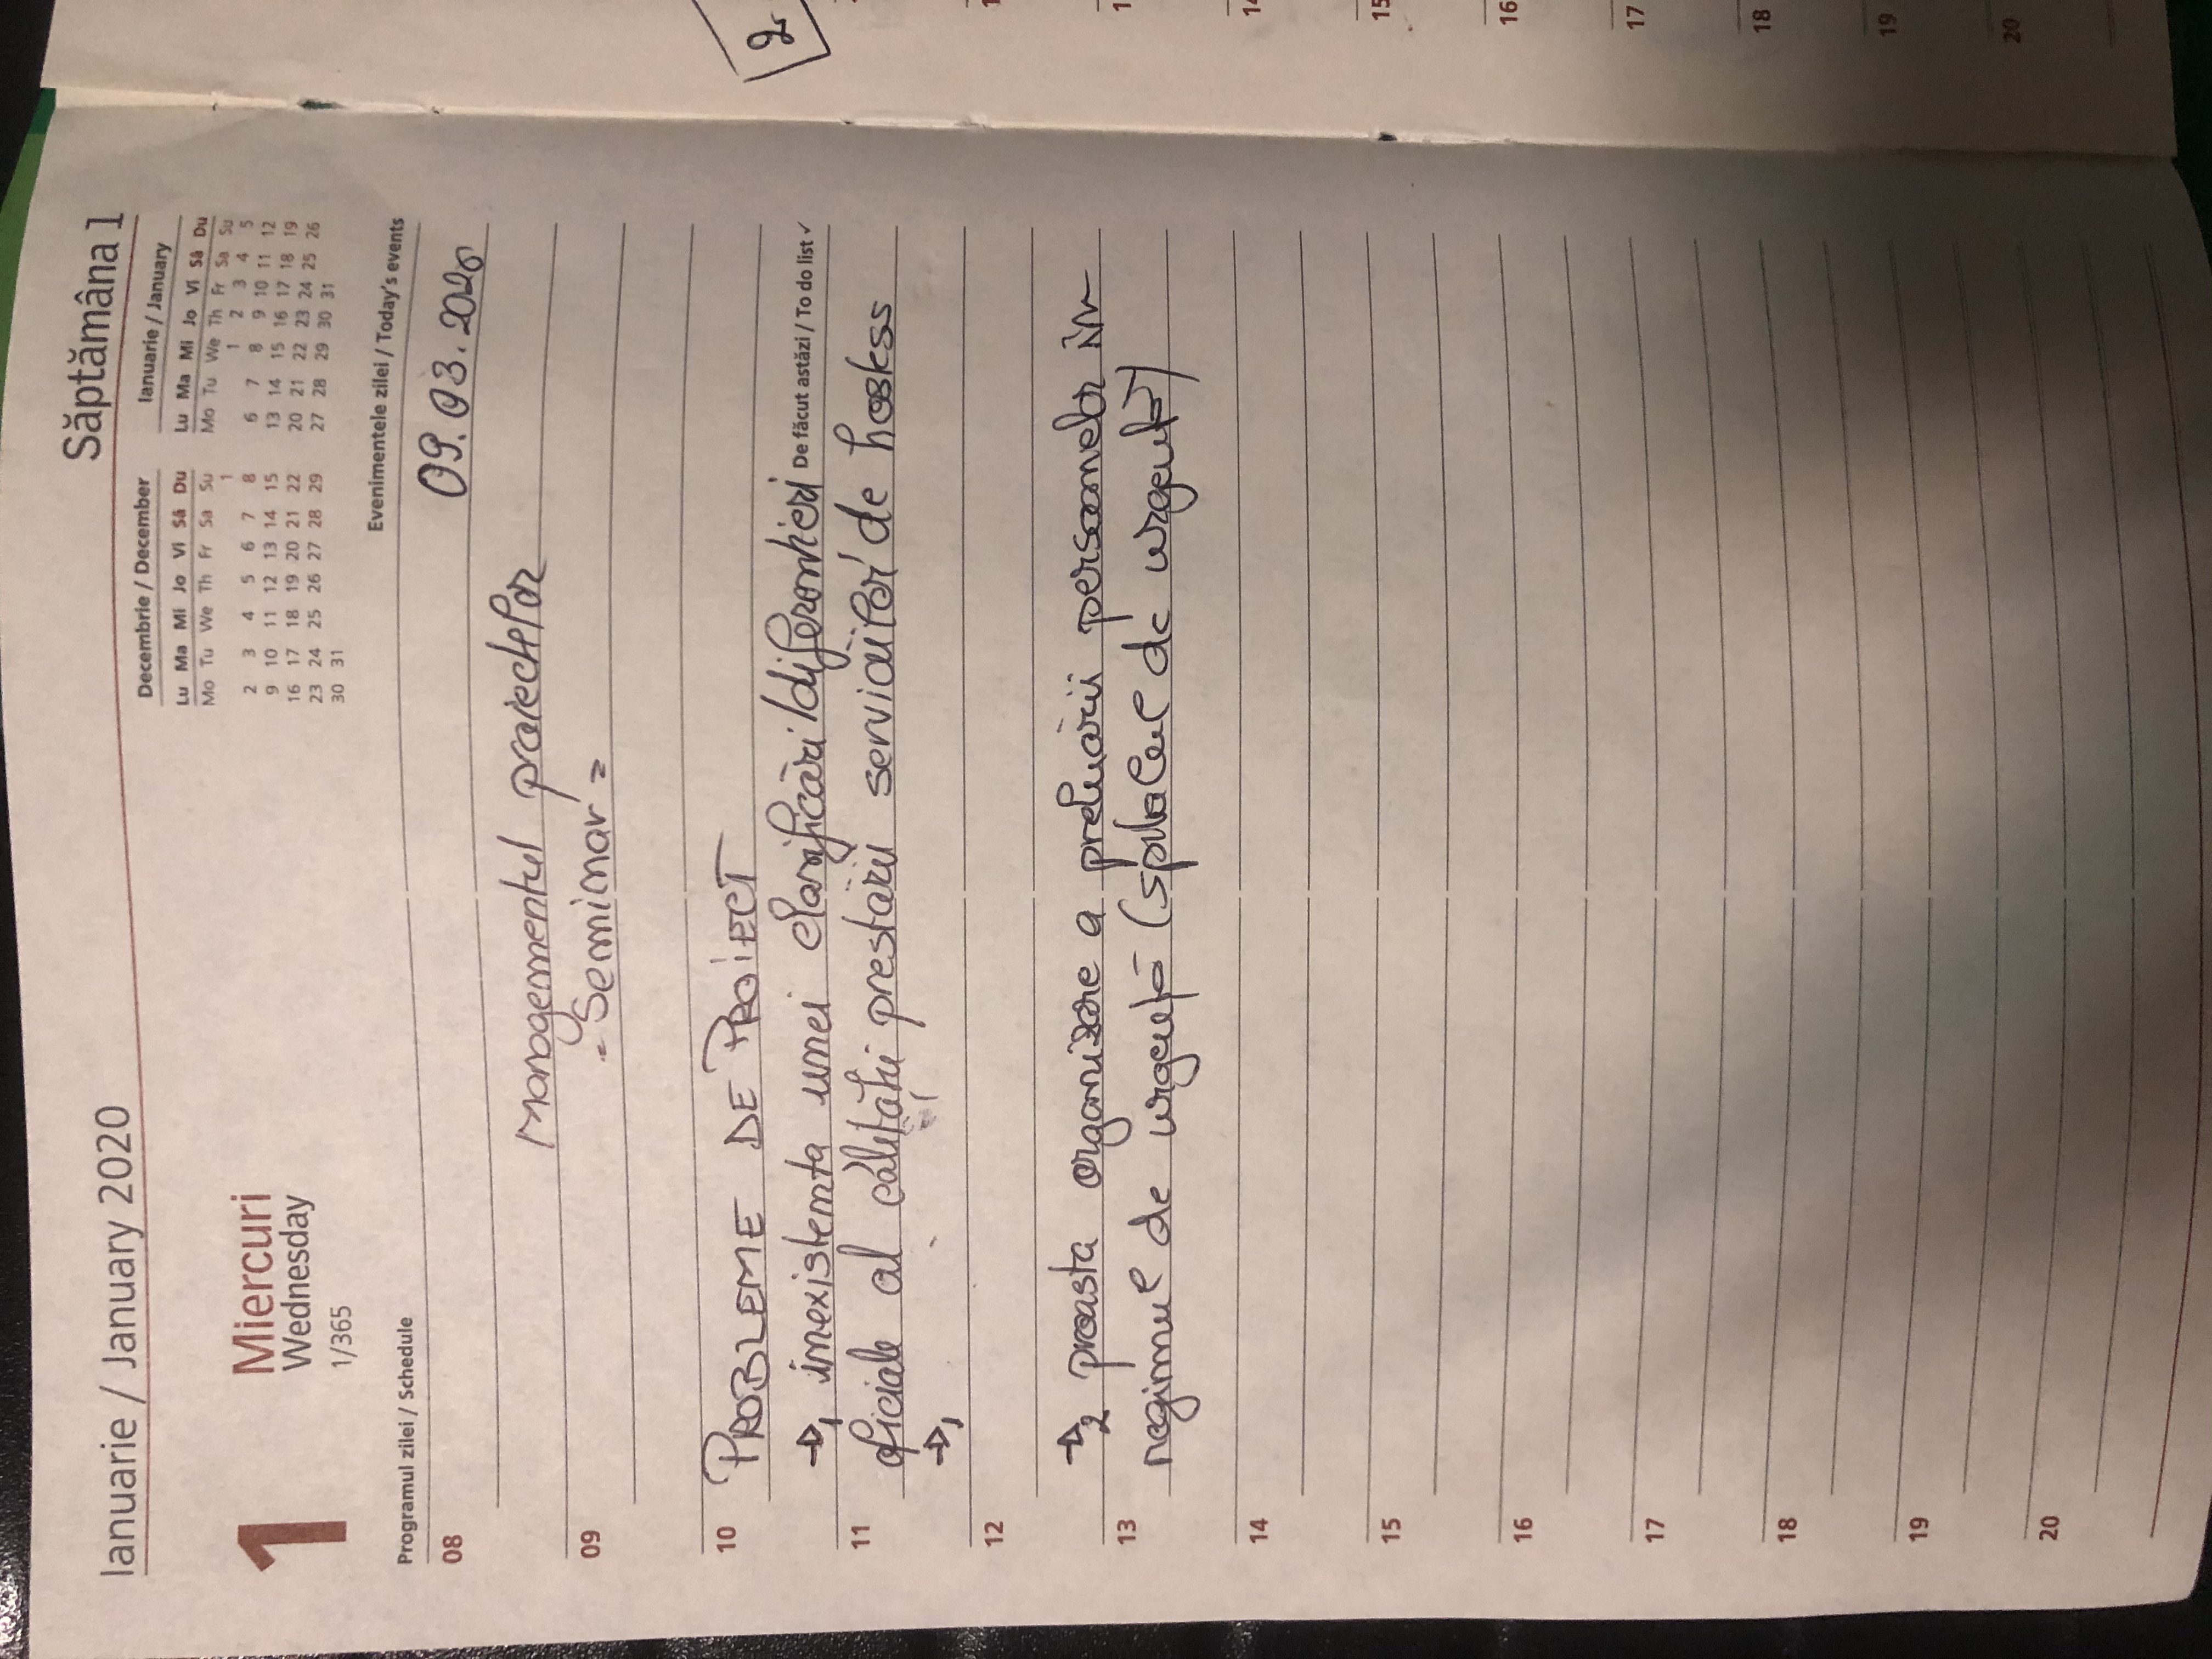 Ianuarie / January 2020
Săptămâna 1
Decembrie / December
Lu Ma Mi Jo Vi Sâ Du
Mo Tu We Th Fr Sa Su
1
2 3 4 5 6 7 8
9 10 11 12 13 14 15
16 17 18 19 20 21 22
23 24 25 26 27 28 29
30 31
Ianuarie / January
Lu Ma Mi Jo Vi Sâ Du
Mo Tu We Th Fr Sa Su
1 2 3 4 5
6 7 8 9 10 11 12
13 14 15 16 17 18 19
20 21 22 23 24 25 26
27 28 29 30 31
1
Miercuri
Wednesday
1/365
Programul zilei / Schedule
Evenimentele zilei / Today's events
08
09.03.2026
Managementul proiectelor
09
- Seminar -
10
PROBLEME DE PROIECT
→1 inexistenta unei clarificări/diferentieri
De făcut astăzi / To do list ✓
11
oficiale al calității prestării serviciilor de hostess
→1
12
→2 proasta organizare a preluării persoanelor în
13
regimul de urgență (spitalul de urgență)
14
15
16
17
18
19
20
2
14
15
16
17
18
19
20